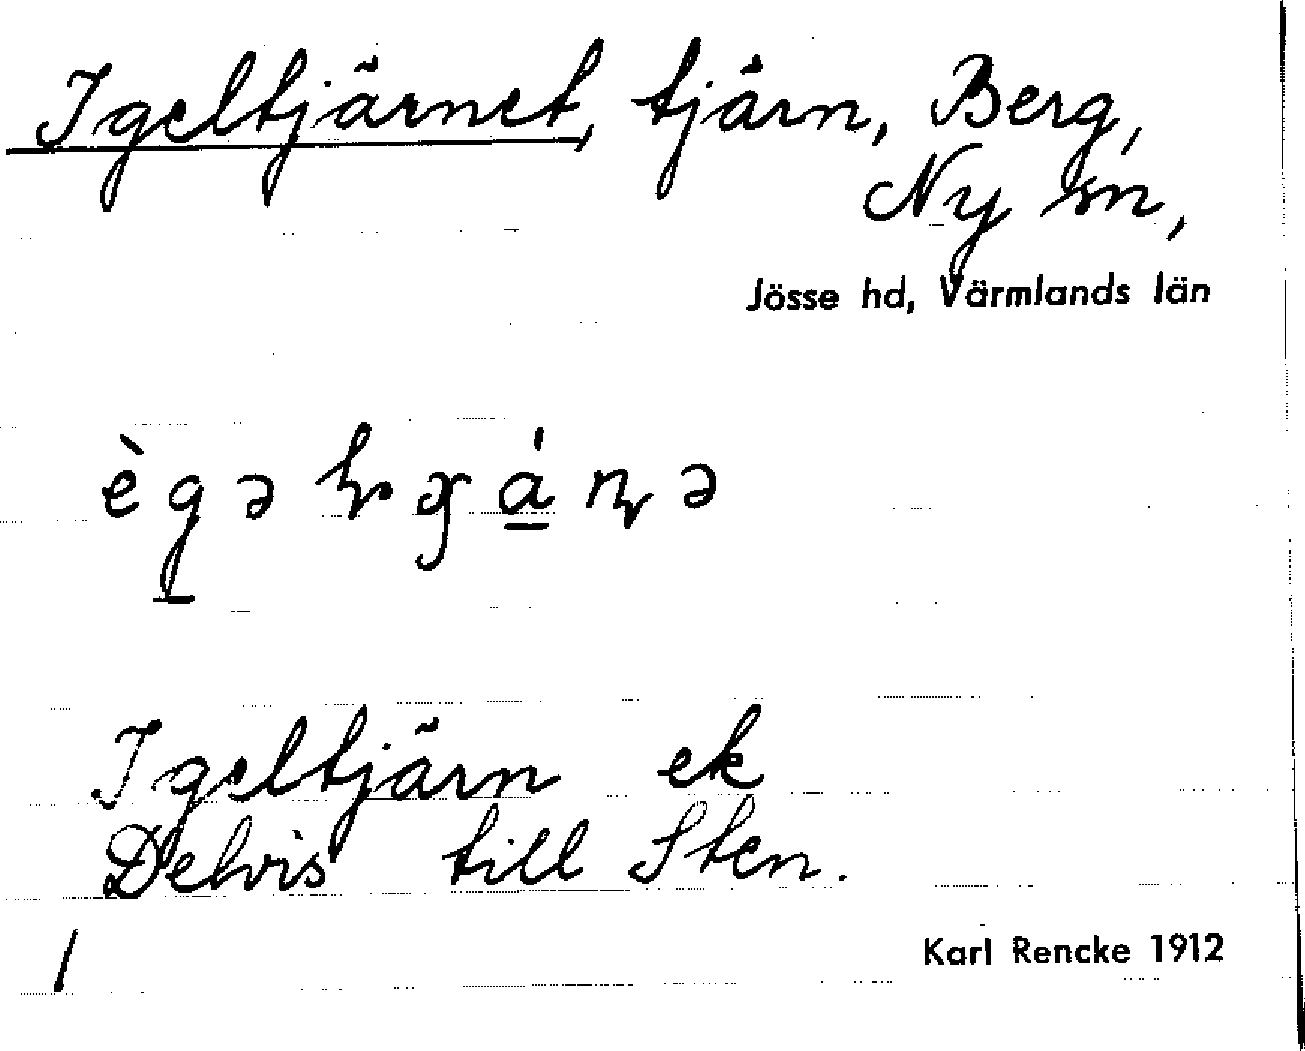 Igeltjärnet, tjärn, Berg,
Ny sn,
Jösse hd, Värmlands län
Igeltjärn ek
Delvis till Sten.
/
Karl Rencke 1912